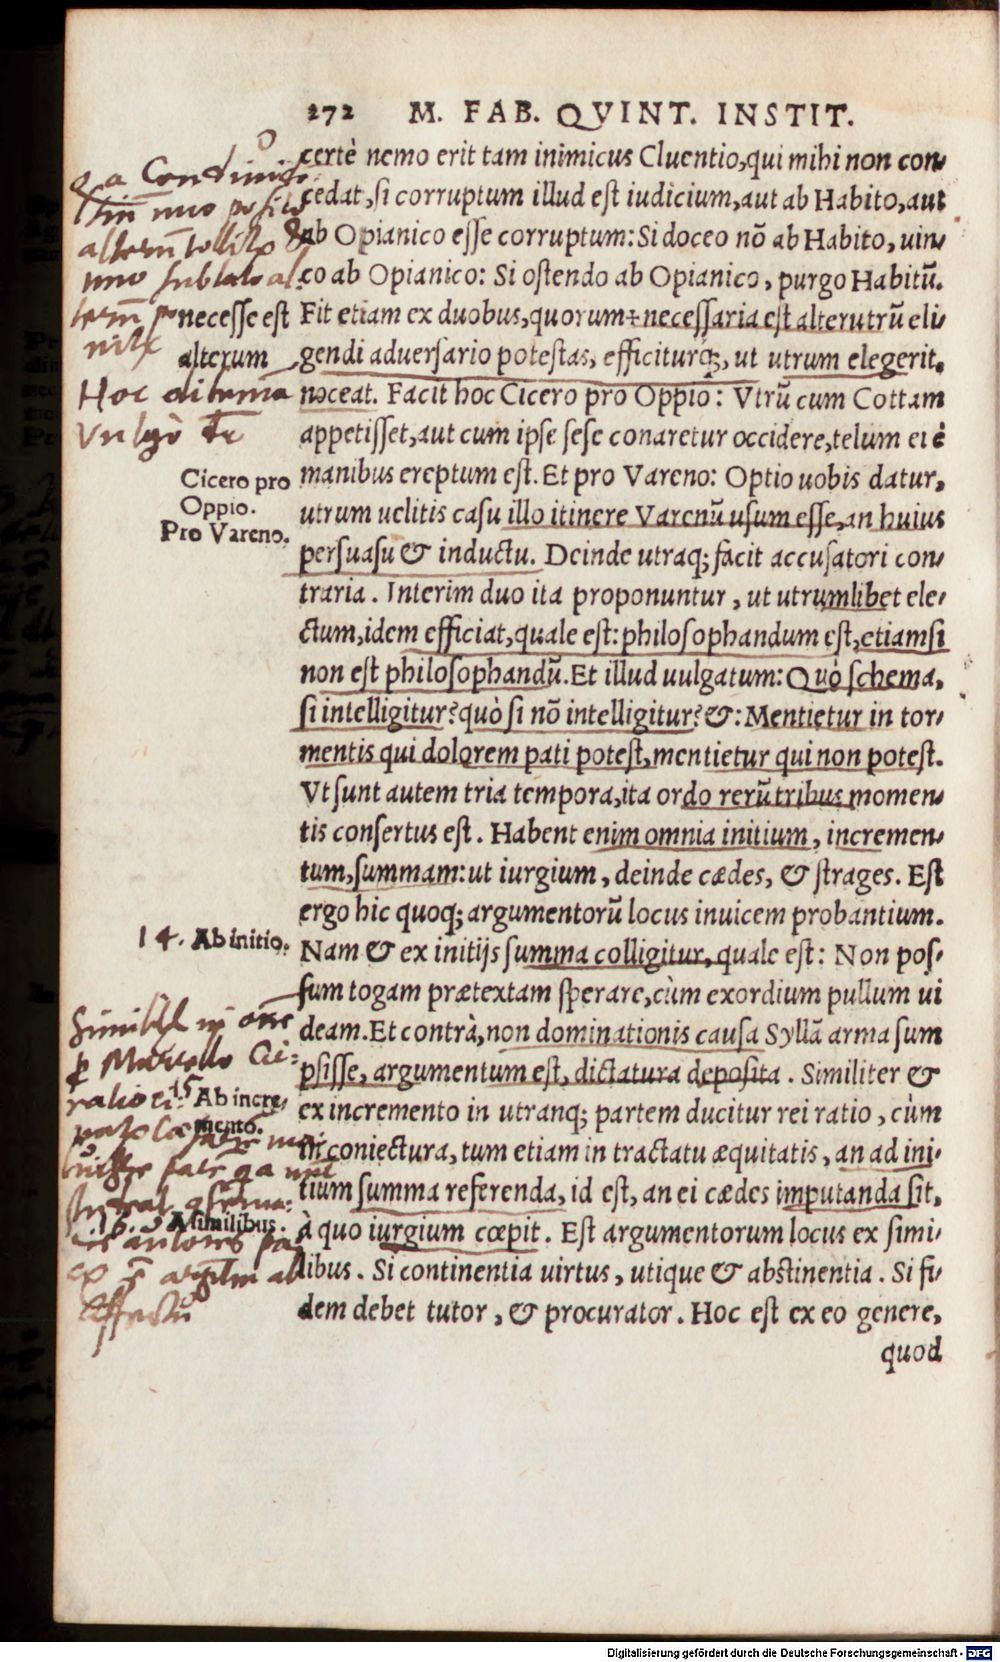 272 M. FAB. QVINT. INSTIT.
certè nemo erit tam inimicus Cluentio, qui mihi non con-
cedat, si corruptum illud est iudicium, aut ab Habito, aut
ab Opianico esse corruptum: Si doceo nō ab Habito, uin-
co ab Opianico: Si ostendo ab Opianico, purgo Habitū.
Fit etiam ex duobus, quorum + necessaria est alterutrū eli-
gendi aduersario potestas, efficiturq;, ut utrum elegerit,
noceat. Facit hoc Cicero pro Oppio: Vtrū cum Cottam
appetisset, aut cum ipse sese conaretur occidere, telum ei è
manibus ereptum est. Et pro Vareno: Optio uobis datur,
utrum uelitis casu illo itinere Varenū usum esse, an huius
persuasu & inductu. Deinde utraq; facit accusatori con-
traria. Interim duo ita proponuntur, ut utrumlibet ele-
ctum, idem efficiat, quale est: philosophandum est, etiamsi
non est philosophandū. Et illud uulgatum: Quò schema,
si intelligitur? quò si nō intelligitur? &: Mentietur in tor-
mentis qui dolorem pati potest, mentietur qui non potest.
Vt sunt autem tria tempora, ita ordo rerū tribus momen-
tis consertus est. Habent enim omnia initium, incremen-
tum, summam: ut iurgium, deinde cædes, & strages. Est
ergo hic quoq; argumentorū locus inuicem probantium.
Nam & ex initijs summa colligitur, quale est: Non pos-
sum togam prætextam sperare, cùm exordium pullum ui
deam. Et contrà, non dominationis causa Syllā arma sum
psisse, argumentum est, dictatura deposita. Similiter &
ex incremento in utranq; partem ducitur rei ratio, cùm
in coniectura, tum etiam in tractatu æquitatis, an ad ini-
tium summa referenda, id est, an ei cædes imputanda sit,
à quo iurgium cœpit. Est argumentorum locus ex simi-
libus. Si continentia uirtus, utique & abstinentia. Si fi-
dem debet tutor, & procurator. Hoc est ex eo genere,
quod
necesse est
alterum
Hoc
Vulgò
Cicero pro
Oppio.
Pro Vareno.
14. Ab initio.
15 Ab incre-
mento.
16. A similibus.
Digitalisierung gefördert durch die Deutsche Forschungsgemeinschaft - DFG